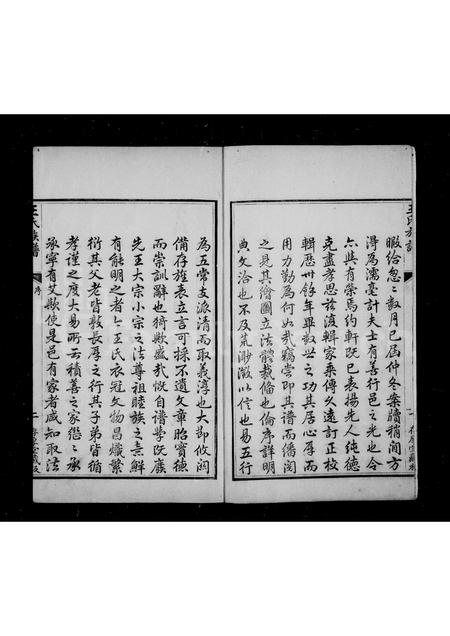 王氏族譜
暇給忽忽數月已屆仲冬案牘稍閒方
得為濡毫計夫士有善行邑之光也今
六與有榮焉約軒既已表揚先人純德
克盡孝思茲復輯家乘傳久遠訂正校
輯歷卅餘年畢數世之功其居心厚而
用力勤為何如哉竊嘗即其譜而繙閱
之見其繪圖立法體裁備也倫序詳明
典文洽也不及荒渺徵以信也易五行
為五常支派清而取義淳也大即攸闕
備存旌表立言可採不遺文章昭實德
而崇訓辭也猗歟盛哉慨自譜學既廢
先王大宗小宗之法尊祖睦族之意鮮
有能明之者今王氏衣冠文物昌熾繁
衍其父老皆敦長厚之行其子弟皆循
孝謹之度大易所云積善之家慈慈承
承寧有艾歟使是邑有家者咸知取法
王氏族譜
序
二